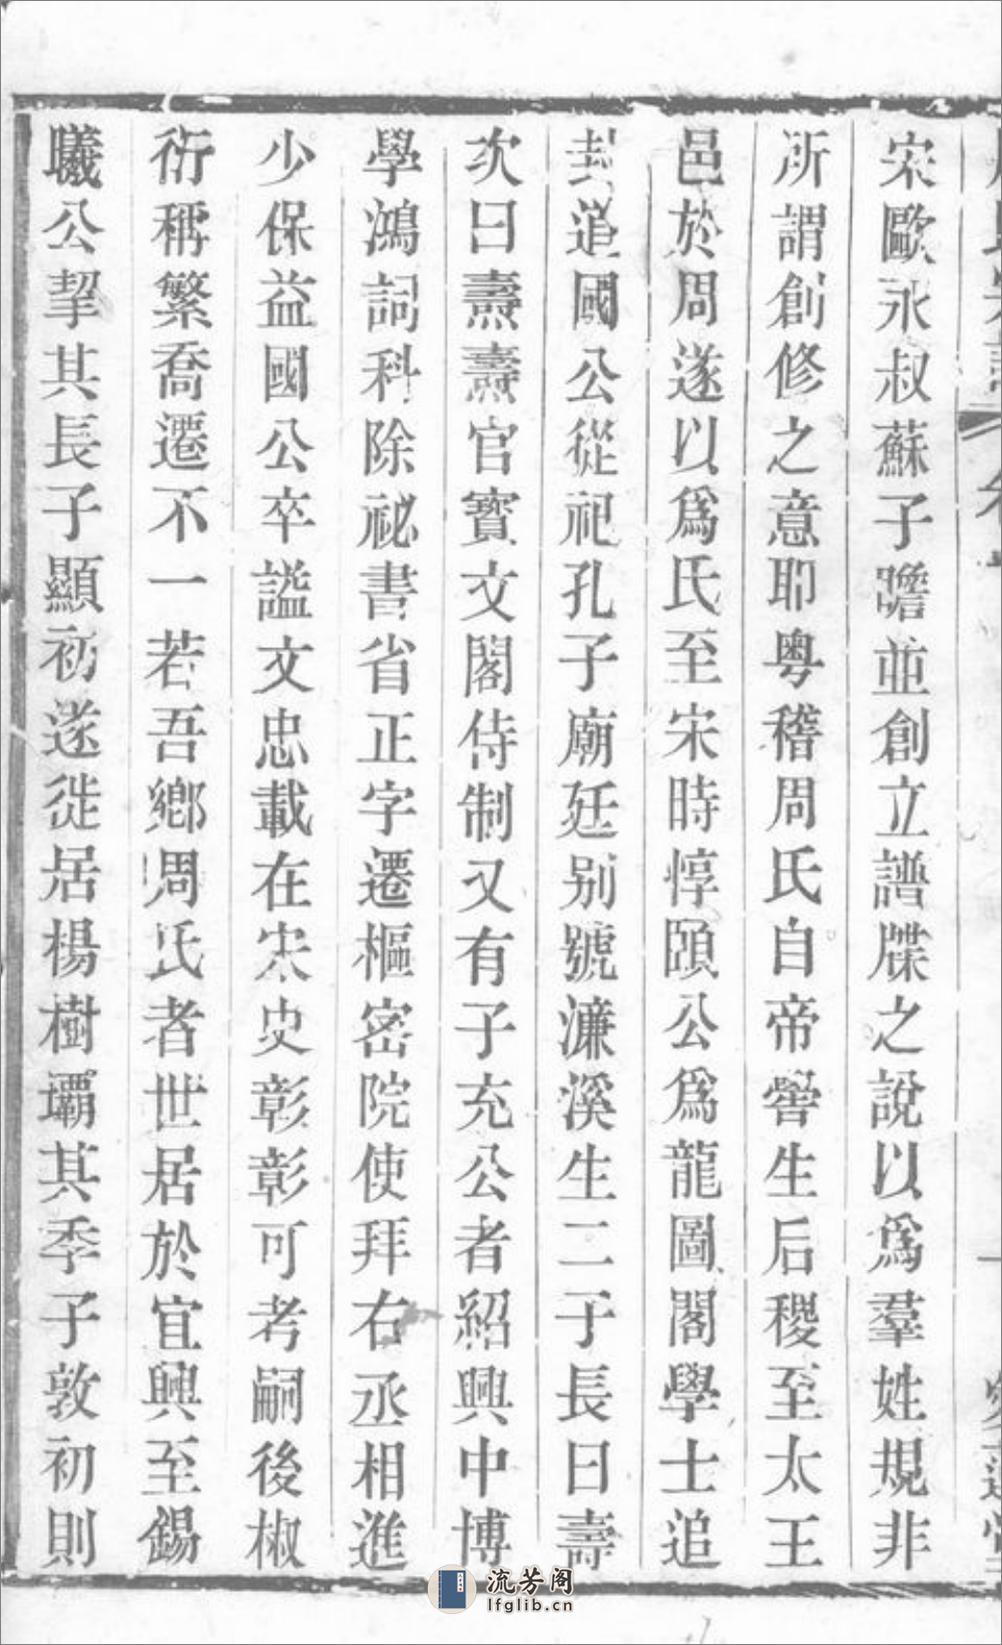 宋歐永叔蘇子瞻並創立譜牒之說以爲羣姓規非
所謂創修之意耶粤稽周氏自帝嚳生后稷至太王
邑於周遂以爲氏至宋時惇頤公爲龍圖閣學士追
封道國公從祀孔子廟廷别號濂溪生二子長曰壽
次曰燾燾官寳文閣侍制又有子充公者紹興中博
學鴻詞科除祕書省正字遷樞密院使拜右丞相進
少保益國公卒謚文忠載在宋史彰彰可考嗣後椒
衍稱繁喬遷不一若吾鄉周氏者世居於宜興至錫
曦公挈其長子顯初遂徙居楊樹壩其季子敦初則
流芳阁
lfglib.cn